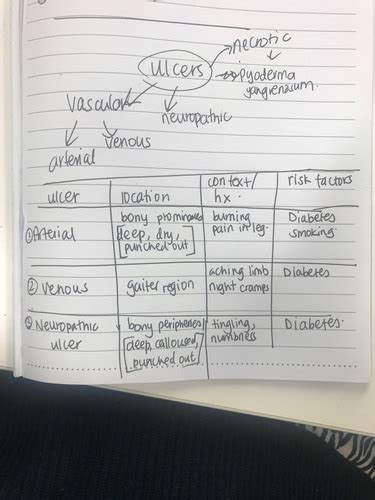 necrotic
ulcers
pyoderma
gangrenosum.
vascular
neuropathic
venous
arterial
ulcer
location
context/
hx.
risk factors
① Arterial
bony prominences
[deep, dry,
punched out]
burning
pain in leg.
Diabetes
smoking.
② Venous
gaiter region
aching limb
night cramps
Diabetes
Neuropathic
ulcer
bony peripheries
[deep, calloused,
punched out]
tingling,
numbness
Diabetes.